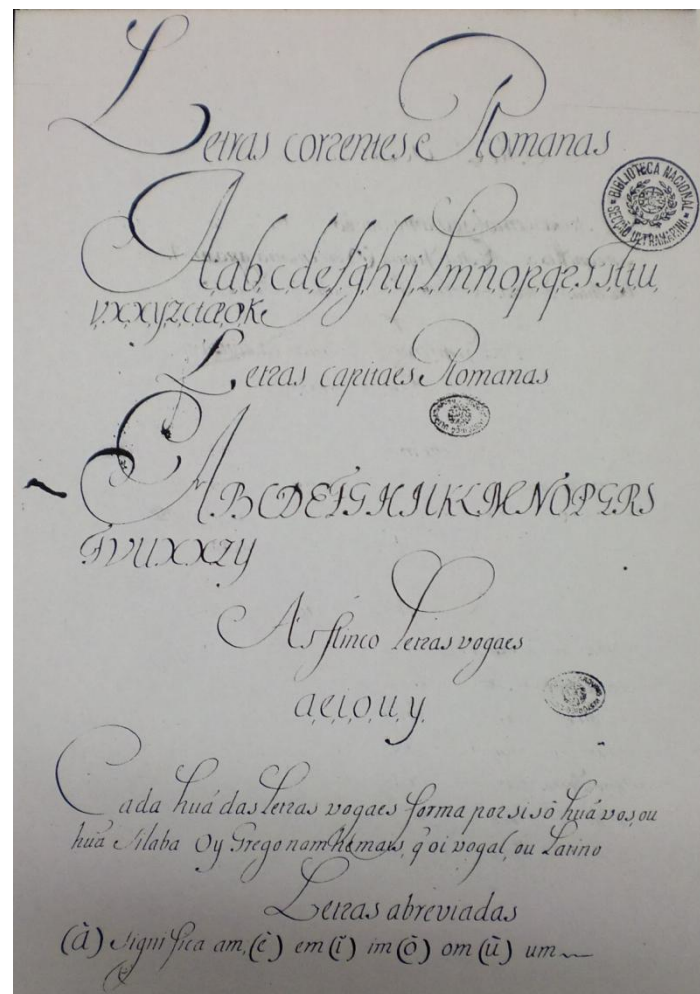 Letras correntes e Romanas
BIBLIOTECA NACIONAL
SECÇÃO ULTRAMARINA
A a,b,c,d,e,f,g,h,y,l,m,n,o,p,q,r,s,s,t,i,u,
v,x,x,y,z,
Letras capitaes Romanas
A B C D E F G H I L K L M N O P Q R S
T V U X X Z Y
As sinco letras vogaes
a,e,i,o,u,y.
Cada huá das letras vogaes forma por si sò huá vos, ou
huã silaba O y Grego nam he mais, q̃ o i vogal, ou Latino
Letras abreviadas
(à) significa am, (è) em (ĩ) im (ò) om (ù) um